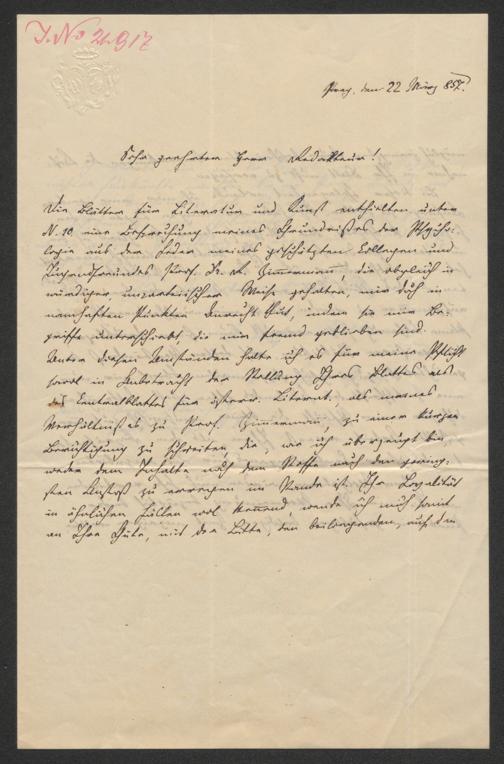 J. No 21.917
Prag, den 22 März 857.
Sehr geehrter Herr Redakteur!
Die Blätter für Literatur und Kunst enthielten unter
N. 10 eine Besprechung meines Grundrißes der Psycho-
logie aus der Feder meines geschätzten Collegen und
Jugendfreundes Prof. Dr. R. Zimmermann, die obgleich in
würdiger, unparteiischer Weise gehalten, mir doch in
namhaften Punkten Unrecht thut, indem sie mir Be-
griffe unterschiebt, die mir fremd geblieben sind.
Unter diesen Umständen halte ich es für meine Pflicht
sowol in Anbetracht der Stellung Ihres Blattes als
des Centralblattes für österr. Literat. als meines
Verhältnißes zu Prof. Zimmermann, zu einer kurzen
Berichtigung zu schreiten, die, wie ich überzeugt bin
weder dem Inhalte noch dem Stoffe nach den gering-
sten Anstoß zu erregen im Stande ist. Ihre Loyalität
in ähnlichen Fällen wol kennend, wende ich mich somit
an Ihre Güte, mit der Bitte, den beiliegenden, auf den